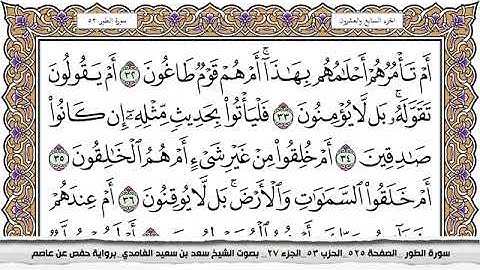 الجزء السابع والعشرون
سورة الطور ٥٢
أَمْ تَأْمُرُهُمْ أَحْلَٰمُهُم بِهَٰذَآ ۚ أَمْ هُمْ قَوْمٌ طَاغُونَ ٣٢ أَمْ يَقُولُونَ
تَقَوَّلَهُۥ ۚ بَل لَّا يُؤْمِنُونَ ٣٣ فَلْيَأْتُوا۟ بِحَدِيثٍ مِّثْلِهِۦٓ إِن كَانُوا۟
صَٰدِقِينَ ٣٤ أَمْ خُلِقُوا۟ مِنْ غَيْرِ شَىْءٍ أَمْ هُمُ ٱلْخَٰلِقُونَ ٣٥
أَمْ خَلَقُوا۟ ٱلسَّمَٰوَٰتِ وَٱلْأَرْضَ ۚ بَل لَّا يُوقِنُونَ ٣٦ أَمْ عِندَهُمْ
سورة الطور _الصفحة ٥٢٥_ الحزب ٥٣ _الجزء ٢٧ _ بصوت الشيخ سعد بن سعيد الغامدي_برواية حفص عن عاصم